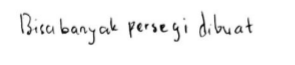 Bisa banyak persegi dibuat